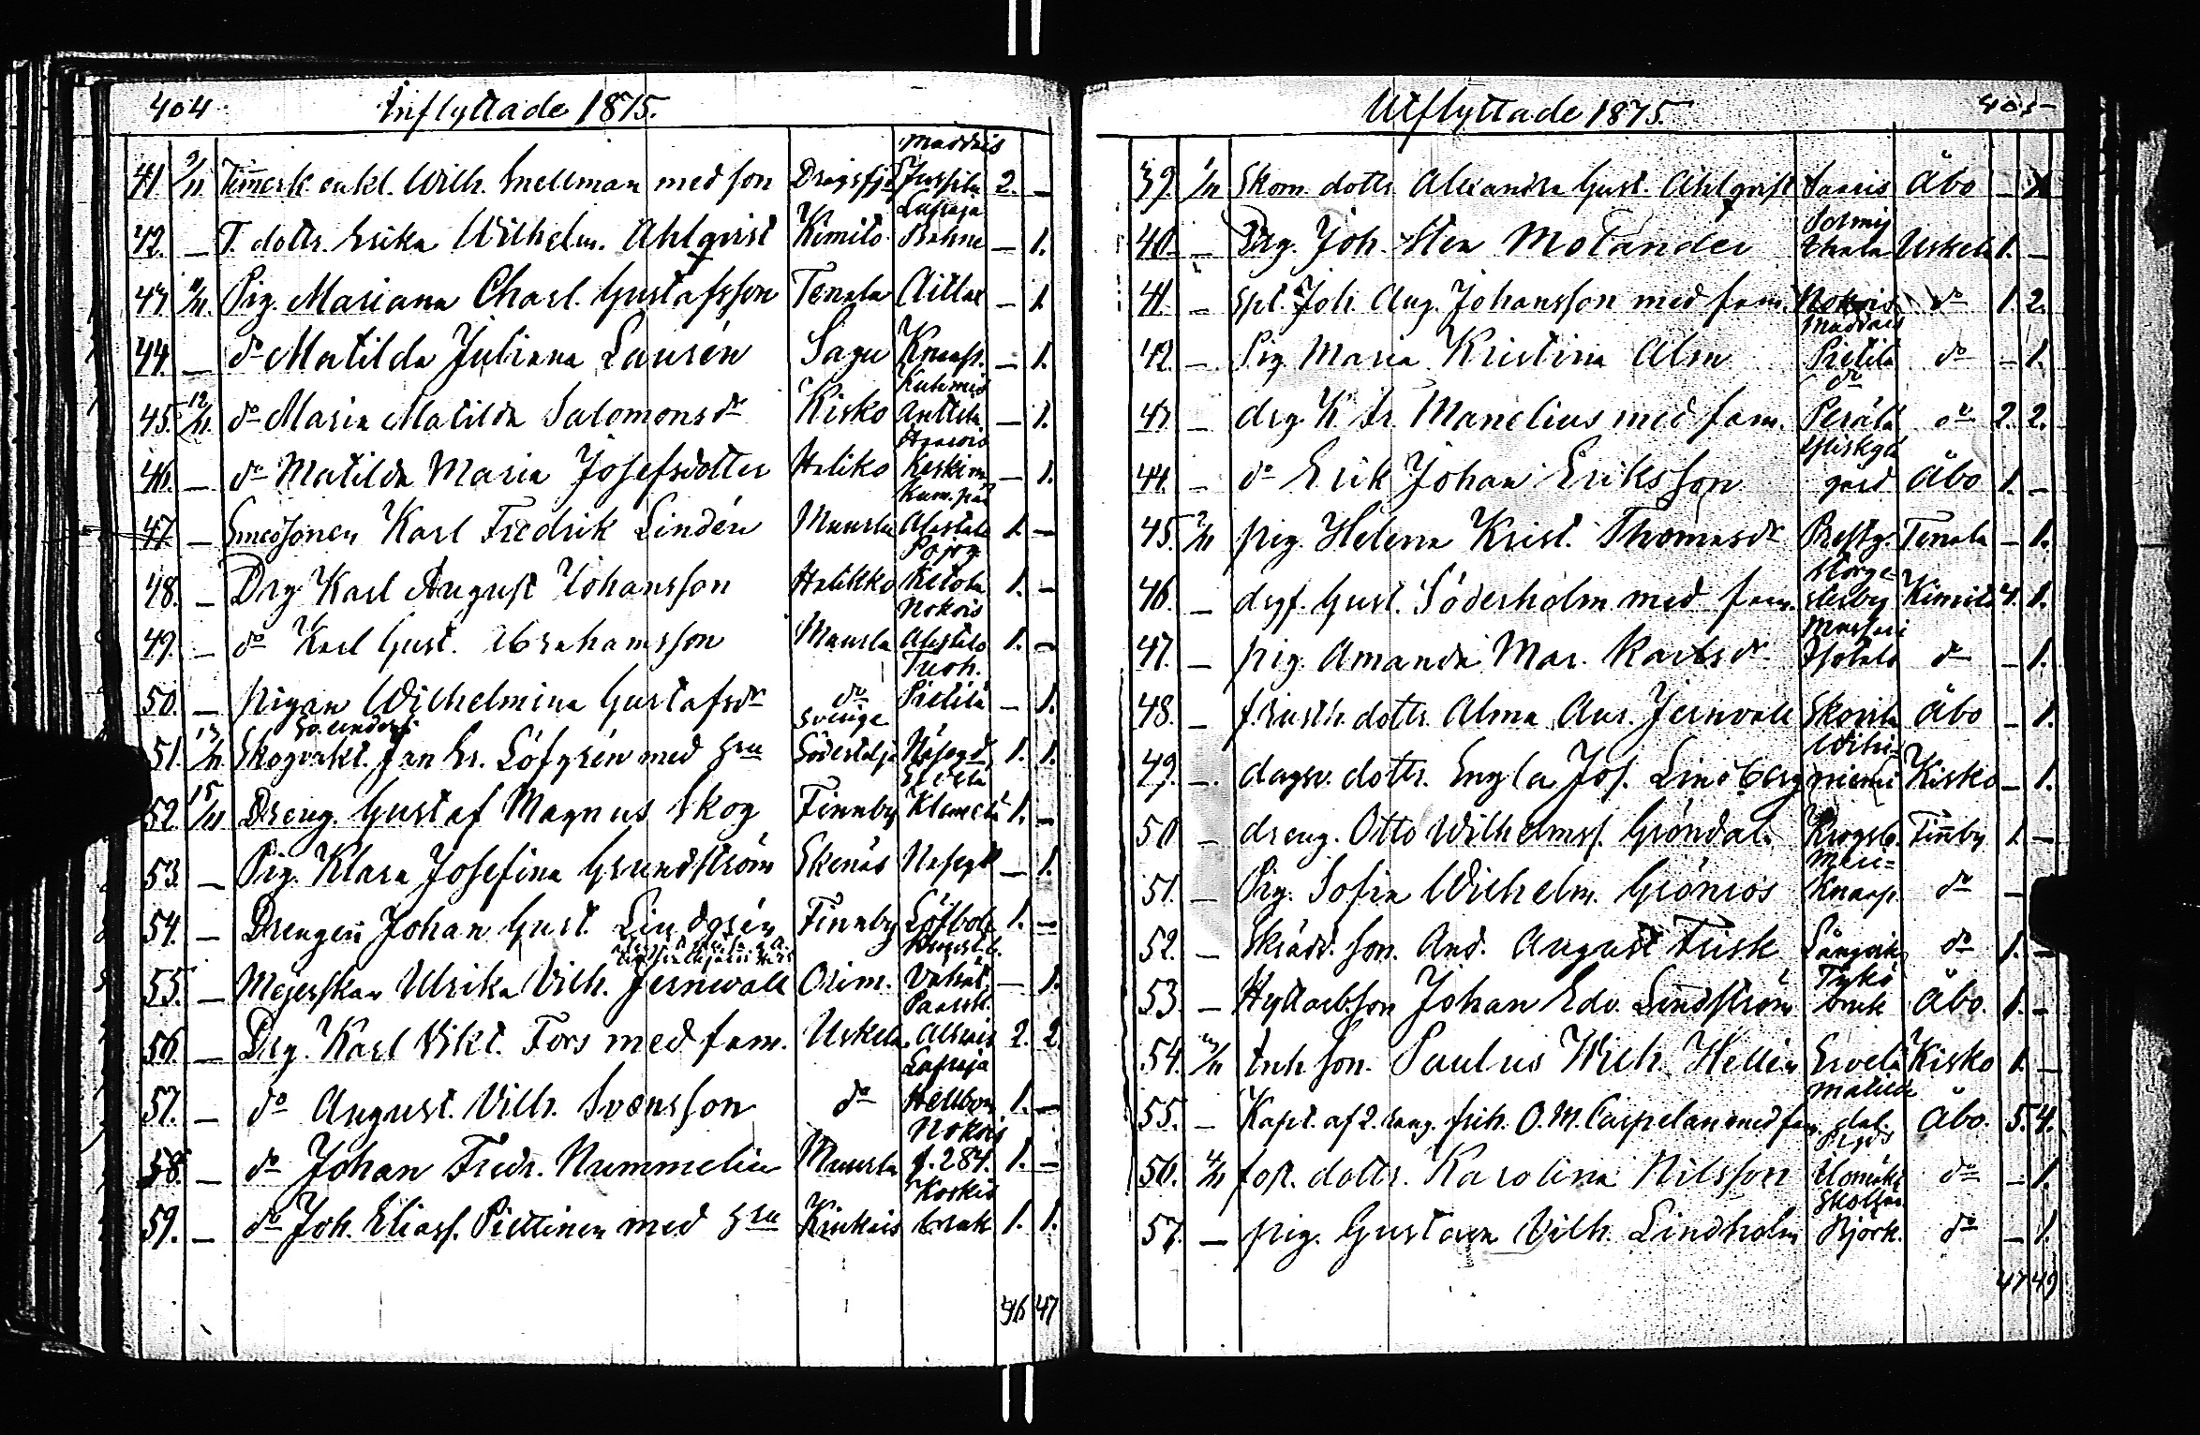 404 Inflyttade 1875.
41. 9/11. Timmerk. enkl. Wilh. Snellman med son Dragsfj. Maddais Jussila 2. –
42. – T. dottr. Erika Wilhelm. Ahlqvist Kimito Lassaja Bohne – 1.
43. 9/11. Pig. Mariana Charl. Gustafsson Tenala Aittal – 1.
44. – do Matilda Juliana Laurén Sagu Knaap. – 1.
45. 12/11. do Maria Matilda Salomonsdr Kisko Kuhmis Anttila – 1.
46. – do Matilda Maria Josefsdotter Haliko Keskim – 1.
47. – Smedsonen Karl Fredrik Lindén Muurla Alastalo 1. –
48. – Drg. Karl August Johansson Halikko Pojog. Ketola 1. –
49. – do Karl Gust. Abrahamsson Muurla Nokois Alastalo 1. –
50. – pigan Wilhelmina Gustafsdr do Tuoh. Pietilä – 1.
51. 13/11 Skogvakt. Jan Er. Löfgrén med hru Sverige Södertelje Näsegd. 1. 1.
52. 15/11 Dreng. Gustaf Magnus Skog Finnby Klemelä 1. –
53. – Pig. Klara Josefina Grundström Ekenäs Näsegd – 1.
54. – Drengen Johan Gust. Lindgrén Finnby Löfböle 1. –
55. – Mejerskan Ulrika Vilh. Jernvall Orim. – 1.
56. – Drg. Karl Vikt. Fors med fam. Uskela 2. 2.
57. – do August. Vilh. Svensson do Lassaja Hellbom 1. –
58. – do Johan Fredr. Nummelin Muurla Nokois f. 284. 1. –
59. – do Joh. Eliass. Piettinen med hru Kiukais Koskis bruk 1. 1.
46 47
Utflyttade 1875. 405
39. 1/11 Skom. dottr. Alexandra Gust. Ahlqvist Saaris Åbo – 1.
40. – Drg. Joh. Sten Molander Uskela 1. –
41. – Spl. Joh. Aug. Johansson med fam. Nokois do 1. 2.
42. – Pig Maria Kristina Alm Maddais Pietilä do – 1.
43. – drg K. Fr. Manelius med fam. do Perälä do 2. 2.
44. – do Erik Johan Eriksson gård Åbo 1. –
45. 2/11 pig. Helena Krist. Thomasdr Prestg. Tenala – 1.
46. – drgf. Gust. Söderholm med fam. Kimito 4. 1.
47. – pig. Amanda Mar. Karlsdr do – 1.
48. – f. rusth dottr. Alma Aur. Jernvall Skoila Åbo – 1.
49. – dagsv. dottr. Engla Jos. Lindberg niemi Kisko – 1.
50 – dreng. Otto Wilhelmss. Gröndal. Krogsb. Finnby 1. –
51. – Pig. Sofia Wilhelm. Grönroos Knaap. do –
52. – Skrädd. son. And. August Frisk Långvik do 1. –
53. – Hyttarb. son Johan Edv. Lindström Tykö bruk Åbo. 1. –
54. Inh son. Paulus Wilh. Hellén Ervelä Kisko 1. –
55. – Kapt. af 2. rang. frih. O. M. Carpelan med fam. Matildedal. Åbo. 5. 4.
56. fost. dottr. Karolina Nilsson do – 1.
57. – pig. Gustava Vilh. Lindholm Björk. do – 1.
47 49